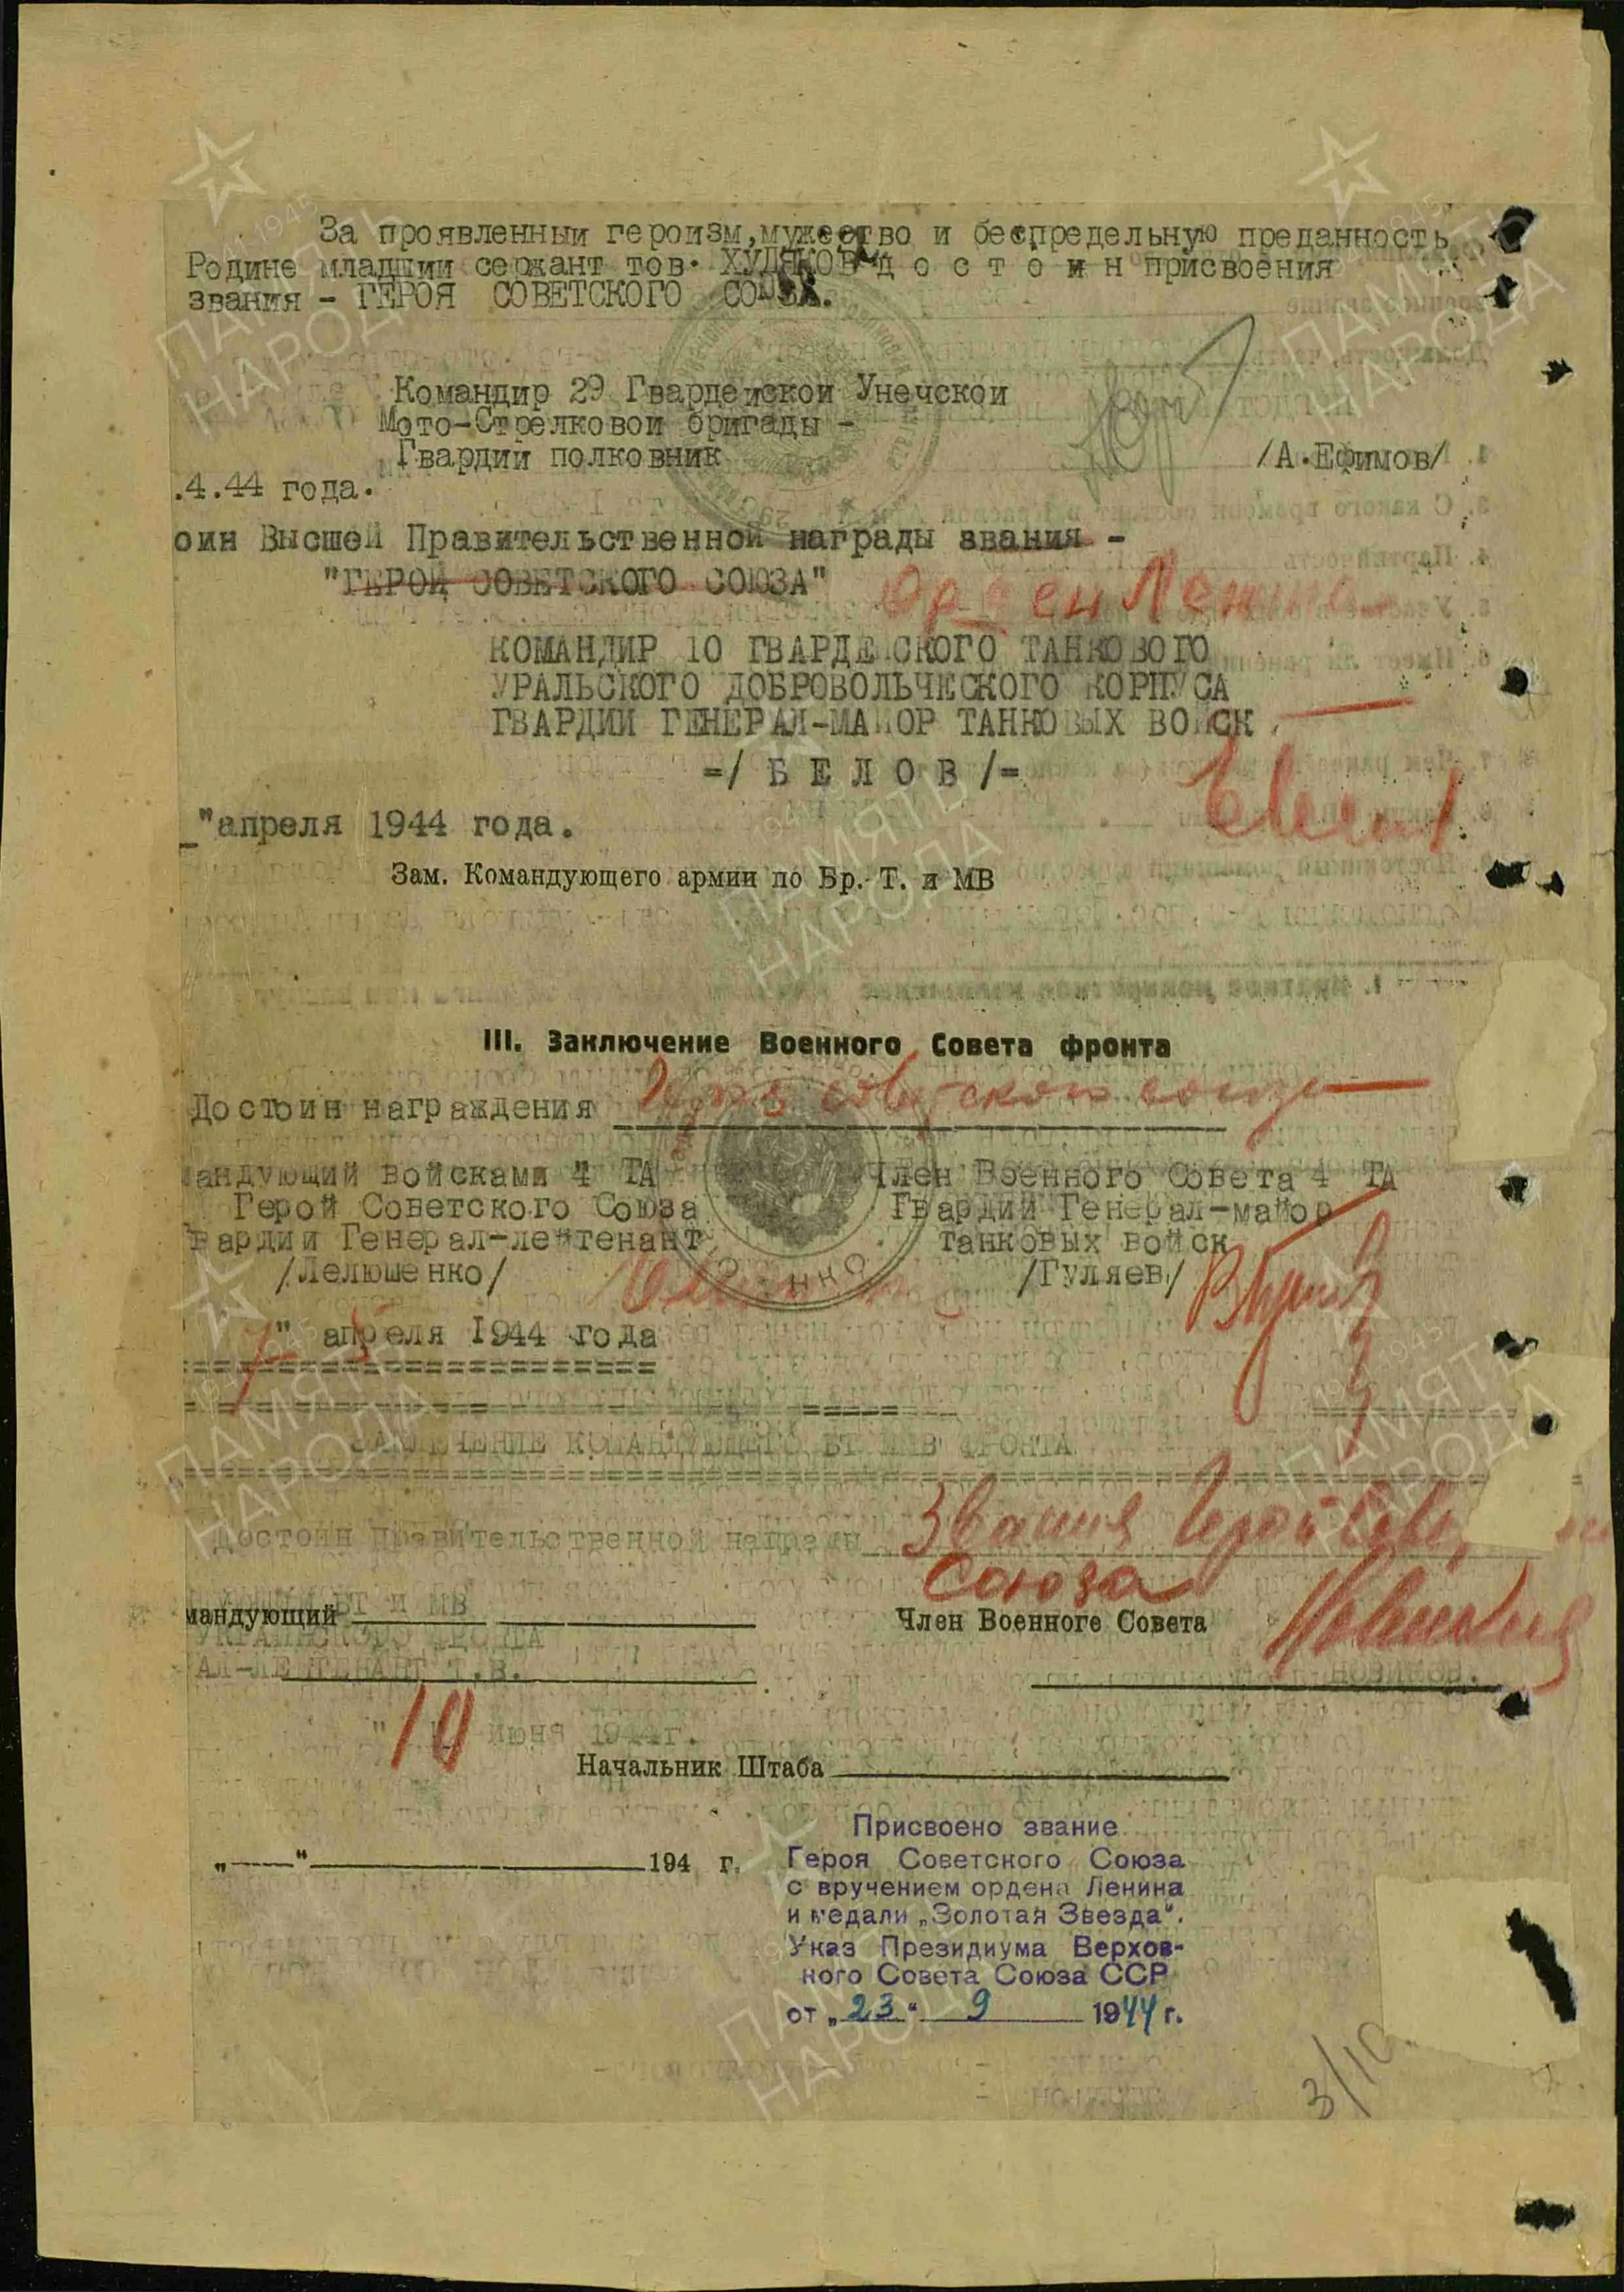 За проявленный героизм, мужество и беспредельную преданность
Родине младший сержант тов. ХУДЯКОВ д о с т о и н присвоения
звания - ГЕРОЯ СОВЕТСКОГО СОЮЗА.
Командир 29 Гвардейской Унечской
Мото-Стрелковой бригады -
Гвардии полковник
/А.Ефимов/
.4.44 года.
оин Высшей Правительственной награды звания -
"ГЕРОЙ СОВЕТСКОГО СОЮЗА"
Орден Ленина
КОМАНДИР 10 ГВАРДЕЙСКОГО ТАНКОВОГО
УРАЛЬСКОГО ДОБРОВОЛЬЧЕСКОГО КОРПУСА
ГВАРДИИ ГЕНЕРАЛ-МАЙОР ТАНКОВЫХ ВОЙСК
=/ Б Е Л О В /=
_"апреля 1944 года.
Зам. Командующего армии по Бр.-Т. и МВ
III. Заключение Военного Совета фронта
Достоин награждения Героя советского союза
андующий войсками 4 ТА
Герой Советского Союза
вардии Генерал-лейтенант
/Лелюшенко/
Член Военного Совета 4 ТА
Гвардии Генерал-майор
танковых войск
/Гуляев/
7" апреля 1944 года
ЗАКЛЮЧЕНИЕ КОМАНДУЮЩЕГО БТ и МВ ФРОНТА
Достоин правительственной награды Звания Герой Сове
Союза
БТ и МВ
мандующий
УКРАИНСКОГО ФРОНТА
АЛ-ЛЕЙТЕНАНТ Т.В.
Член Военного Совета
НОВИКОВ.
"10 июня 1944г.
Начальник Штаба
„ “ 194 г.
Присвоено звание
Героя Советского Союза
с вручением ордена Ленина
и медали „Золотая Звезда“.
Указ Президиума Верхов-
ного Совета Союза ССР
от „23“ 9 1944 г.
3/10
ПАМЯТЬ
НАРОДА
1941 1945